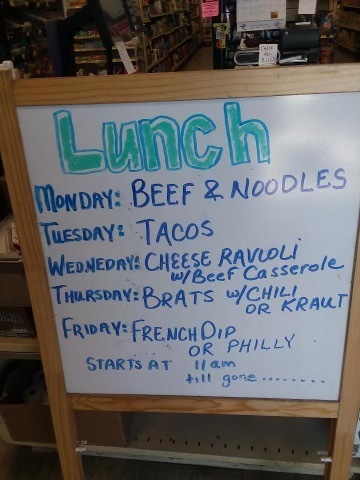 Lunch
MONDAY: BEEF & NOODLES
TUESDAY: TACOS
WEDNEDAY: CHEESE RAVIOLI
w/Beef Casserole
THURSDAY: BRATS w/CHILI
OR KRAUT
FRIDAY: FRENCH DIP
OR PHILLY
STARTS AT 11am
till gone........